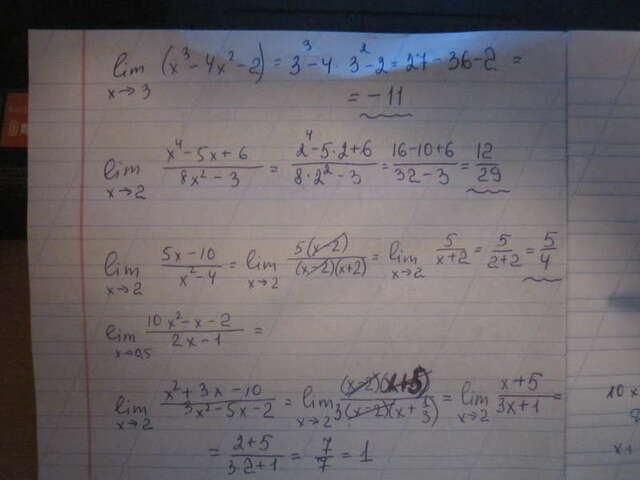 lim x→3 (x³ - 4x² - 2) = 3³ - 4 · 3² - 2 = 27 - 36 - 2 =
= -11
lim x→2 (x⁴ - 5x + 6)/(8x² - 3) = (2⁴ - 5·2 + 6)/(8·2² - 3) = (16 - 10 + 6)/(32 - 3) = 12/29
lim x→2 (5x - 10)/(x² - 4) = lim x→2 5(x-2)/((x-2)(x+2)) = lim x→2 5/(x+2) = 5/(2+2) = 5/4
lim x→0,5 (10x² - x - 2)/(2x - 1) =
lim x→2 (x² + 3x - 10)/(3x² - 5x - 2) = lim x→2 (x-2)(x+5)/(3(x-2)(x + 1/3)) = lim x→2 (x+5)/(3x+1) =
= (2+5)/(3·2+1) = 7/7 = 1
10x
x+